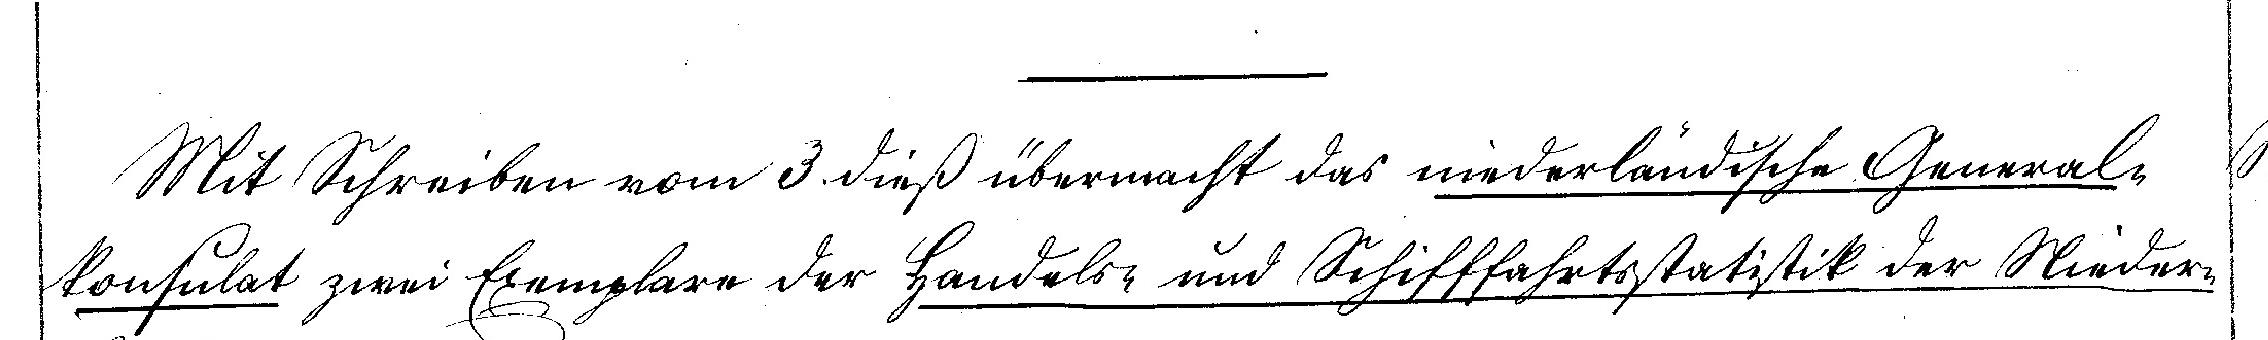 Mit Schreiben vom 3. dieß übermacht das niederländische General-
konsulat zwei Exemplare der Handels- und Schifffahrtsstatistik der Nieder-